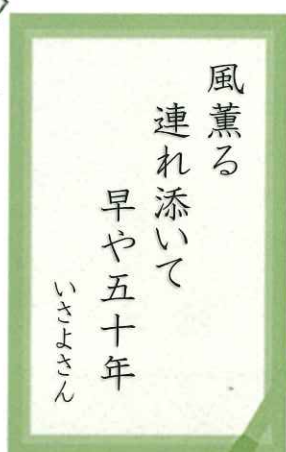 風薫る
連れ添いて
早や五十年
いさよさん